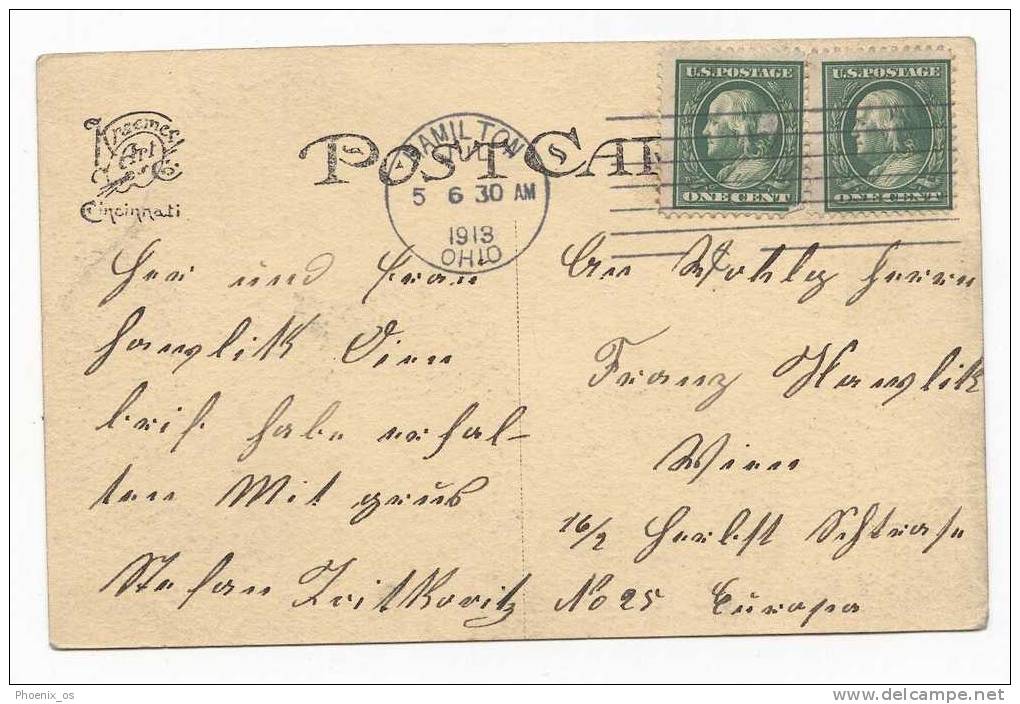 Kraemer Art Co
Cincinnati
POST CAR
HAMILTON
JUL
5 6 30 AM
1913
OHIO
U.S. POSTAGE
ONE CENT
U.S. POSTAGE
ONE CENT
Her und Frau
Hawlik Dien
brif habe erhal-
ten Mit grüs
Stefan Zeitkovitz
An Wohlg Herrn
Franz Hawlik
Wien
16/2 Herbst Schtrase
No 25 Europa
Phoenix_os
delcampe.net